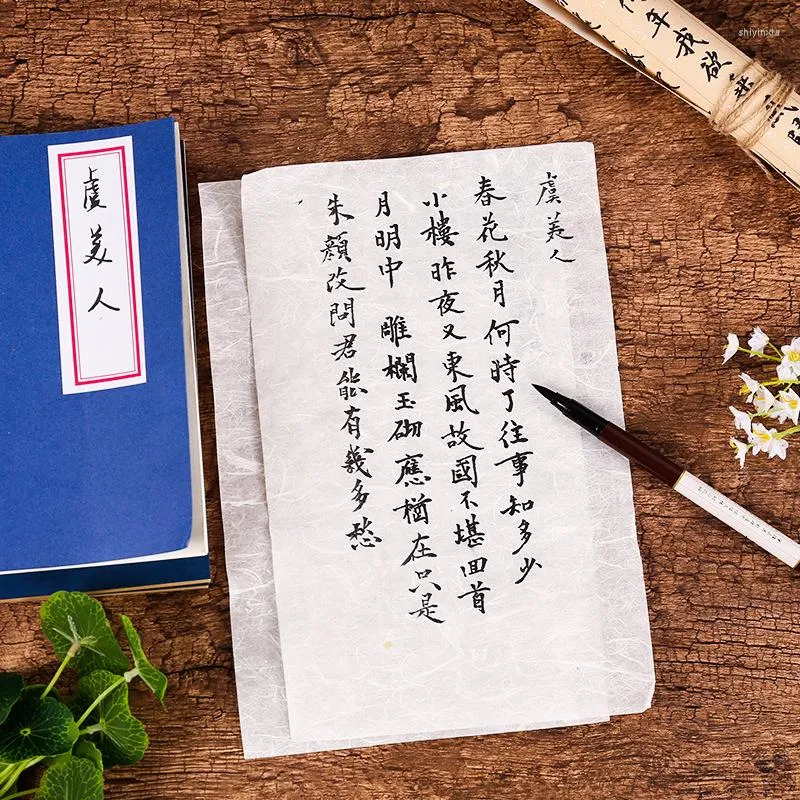 虞美人
春花秋月何時了往事知多少
小樓昨夜又東風故國不堪回首
月明中 雕欄玉砌應猶在只是
朱顏改問君能有幾多愁
虞美人
年我欲
shiyinxia